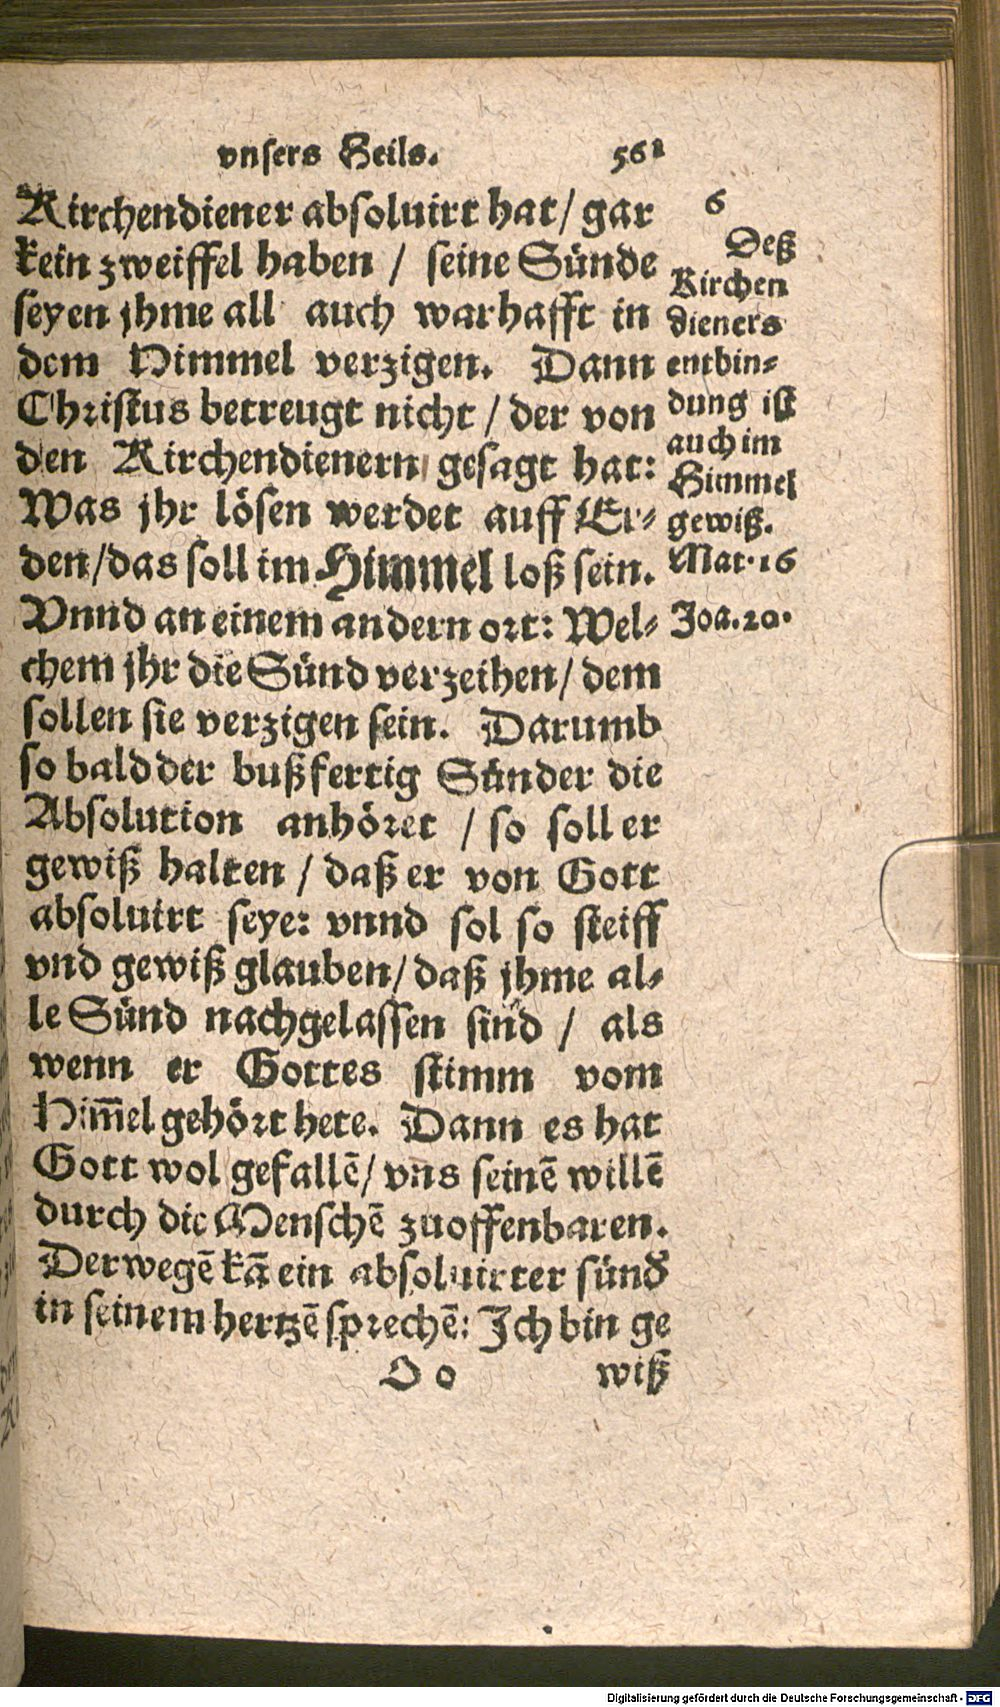 vnsers Heils. 561
Kirchendiener absoluirt hat/ gar
kein zweiffel haben / seine Sünde
seyen jhme all auch warhafft in
dem Himmel verzigen. Dann
Christus betreugt nicht / der von
den Kirchendienern gesagt hat:
Was jhr lösen werdet auff Er-
den/das soll im Himmel loß sein.
Vnnd an einem andern ort: Wel-
chem jhr die Sünd verzeihen/ dem
sollen sie verzigen sein. Darumb
so bald der bußfertig Sünder die
Absolution anhöret / so soll er
gewiß halten / daß er von Gott
absoluirt seye: vnnd sol so steiff
vnd gewiß glauben/ daß jhme al-
le Sünd nachgelassen sind / als
wenn er Gottes stimm vom
Him̃el gehört hete. Dann es hat
Gott wol gefallē/ vns seinē willē
durch die Menschē zuoffenbaren.
Derwegē kā ein absoluirter sünd
in seinem hertzē sprechē: Ich bin ge
O o wiß
6
Deß
Kirchen
dieners
entbin-
dung ist
auch im
Himmel
gewiß.
Mat. 16
Joa. 20.
Digitalisierung gefördert durch die Deutsche Forschungsgemeinschaft - DFG